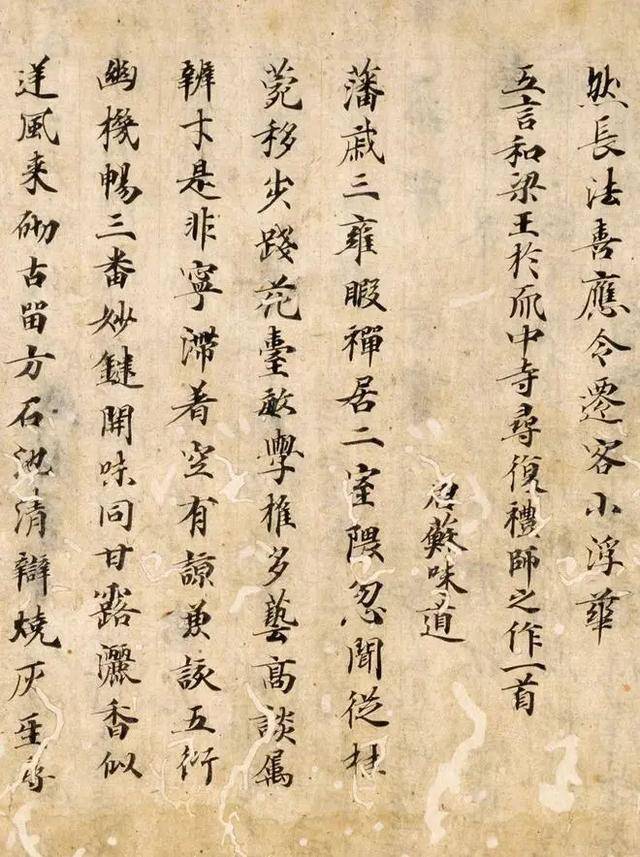 然長法善應令遷客小浮華
五言和梁王於𠀑中寺尋復禮師之作一首
蘇味道
藩戚三雍暇禪居二室隈忽聞從桂
菀移步踐花臺敏學推多藝高談屬
辨才是非寧滯著空有諒兼詼五衍
幽機暢三番妙鍵開味同甘露灑香似
逆風来砌古留方石池清辯燒灰𤯔尋